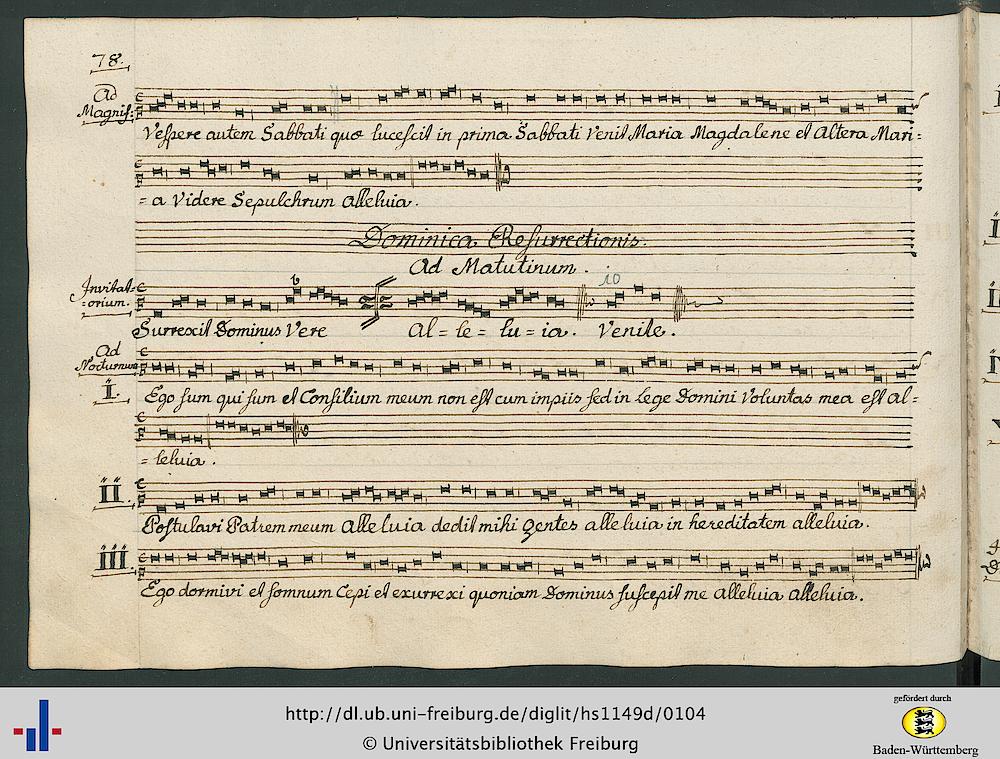 78.
Ad
Magnif:
Vespere autem Sabbati quæ lucescit in prima Sabbati Venit Maria Magdalene et Altera Mari=
= a Videre Sepulchrum Alleluia.
Dominica Resurrectionis.
Ad Matutinum.
Invitat=
=orium.
10
Surrexit Dominus Vere Al= le= lu= ia. Venite.
Ad
Nocturnum
I.
Ego sum qui sum et Consilium meum non est cum impiis sed in Lege Domini Voluntas mea est Al=
= leluia.
II.
Postulavi Patrem meum Alleluia dedit mihi gentes alleluia in hereditatem alleluia.
III.
Ego dormivi et somnum Cepi et exurrexi quoniam Dominus suscepit me Alleluia Alleluia.
http://dl.ub.uni-freiburg.de/diglit/hs1149d/0104
© Universitätsbibliothek Freiburg
gefördert durch
Baden-Württemberg